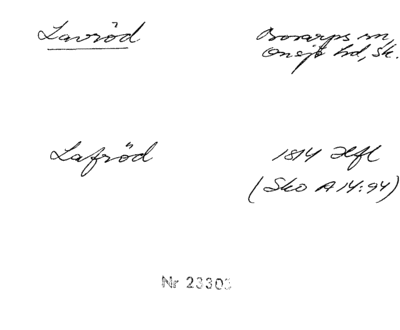 Lavröd
Bosarps sn,
Onsjö hd, Sk.
Lafröd
1814 Hfl
(Sko A 14:94)
Nr 23303